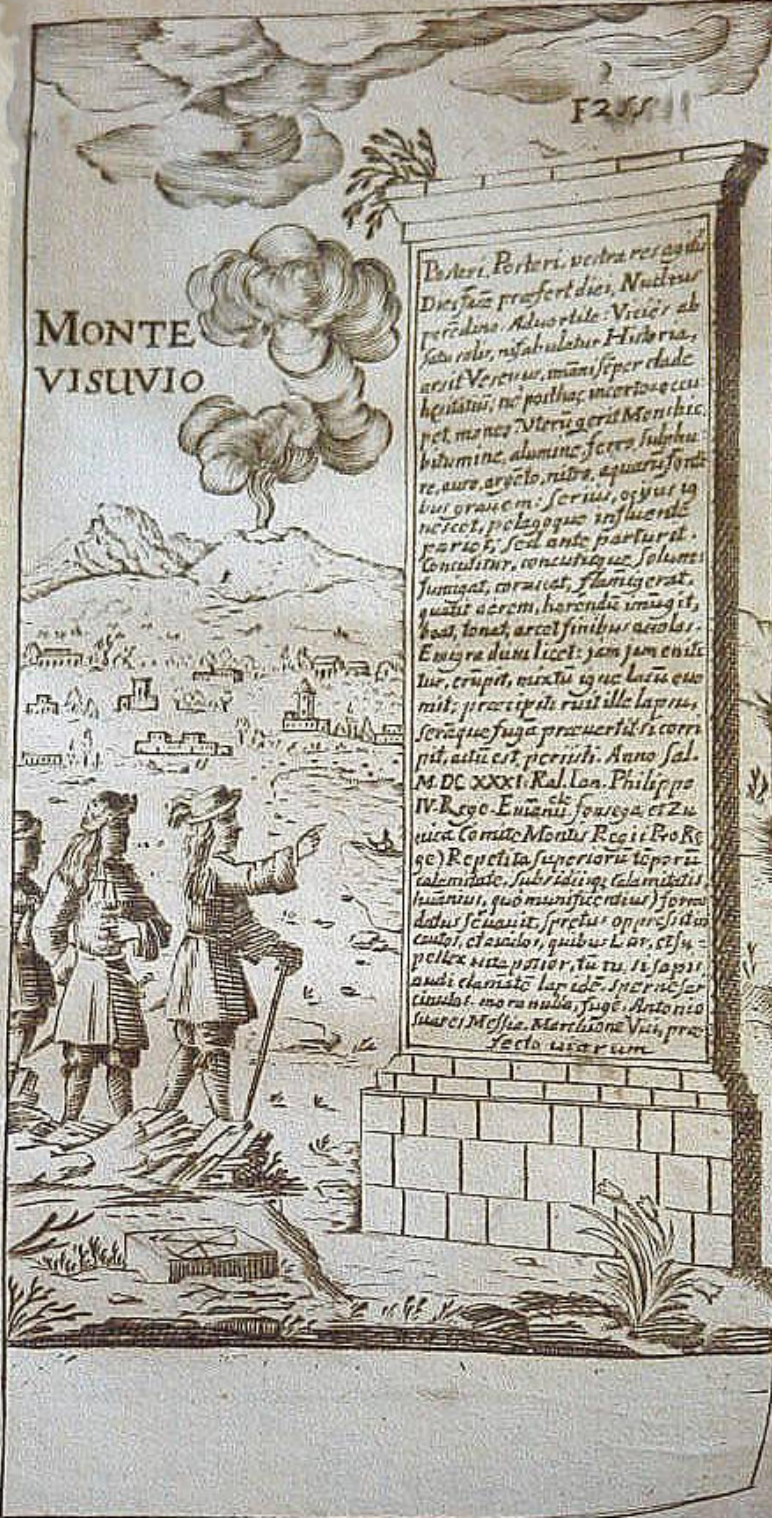 F 255
MONTE
VISUVIO
Posteri, Posteri, vestra res agitur
Dies facē præfert diei, Nudius
perēdino. Advortite: Viciēs ab
satu solis, ni fabulatur Historia,
arsit Vesevus, imāni sēper clade
hęsitātiū, ne posthac incertos occu:
pet, moneo. Uterū gerit Mons hic,
bitumine, alumine, ferro, sulphu:
re, auro, argēto, nitro, aquarū fonti
bus gravem: Serius, ocyus ig
nescet, pelagoque influente
pariet; Sed ante parturit.
Concutitur, concutitque solum:
fumigat, coruscat, flāmigerat,
quatit aerem, horrendū imugit,
boat, tonat, arcet finibus accolas.
Emigra dum licet: jam jam eniti
tur, erupit, mixtū igne lacū evo
mit; præcipiti ruit ille lapsu,
serāque fugā prævertit; si corri
pit, actū est, periisti. Anno Sal.
M.DC XXXI. Kal. Ian. Philippo
IV. Rege. Emānu
fonsega et Zu
nica Comite Montis Regii Pro Re
ge) Repetita superiorū tēporū
calamitate, subsidiisq; calamitatis
humanius, quo munificentius) formi
datus servavit, spretus oppressit in
cautos, et avidos, quibus Lar, et su-
pellex vita potior, tū tu, si sapis,
audi clamātē lapidē, sperne lar
cinulas, mora nulla, fuge. Antonio
suares Messia. Marchione Vici, præ-
fecto viarum